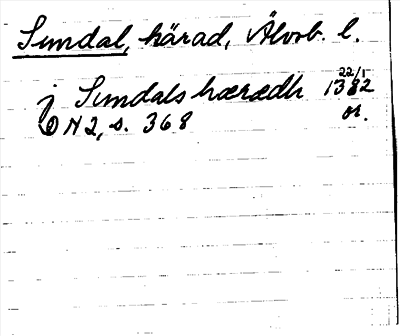 Sundal, härad, Älvsb. l.
j Sundals hærædh 22/1 1382
DN 2, s. 368 or.